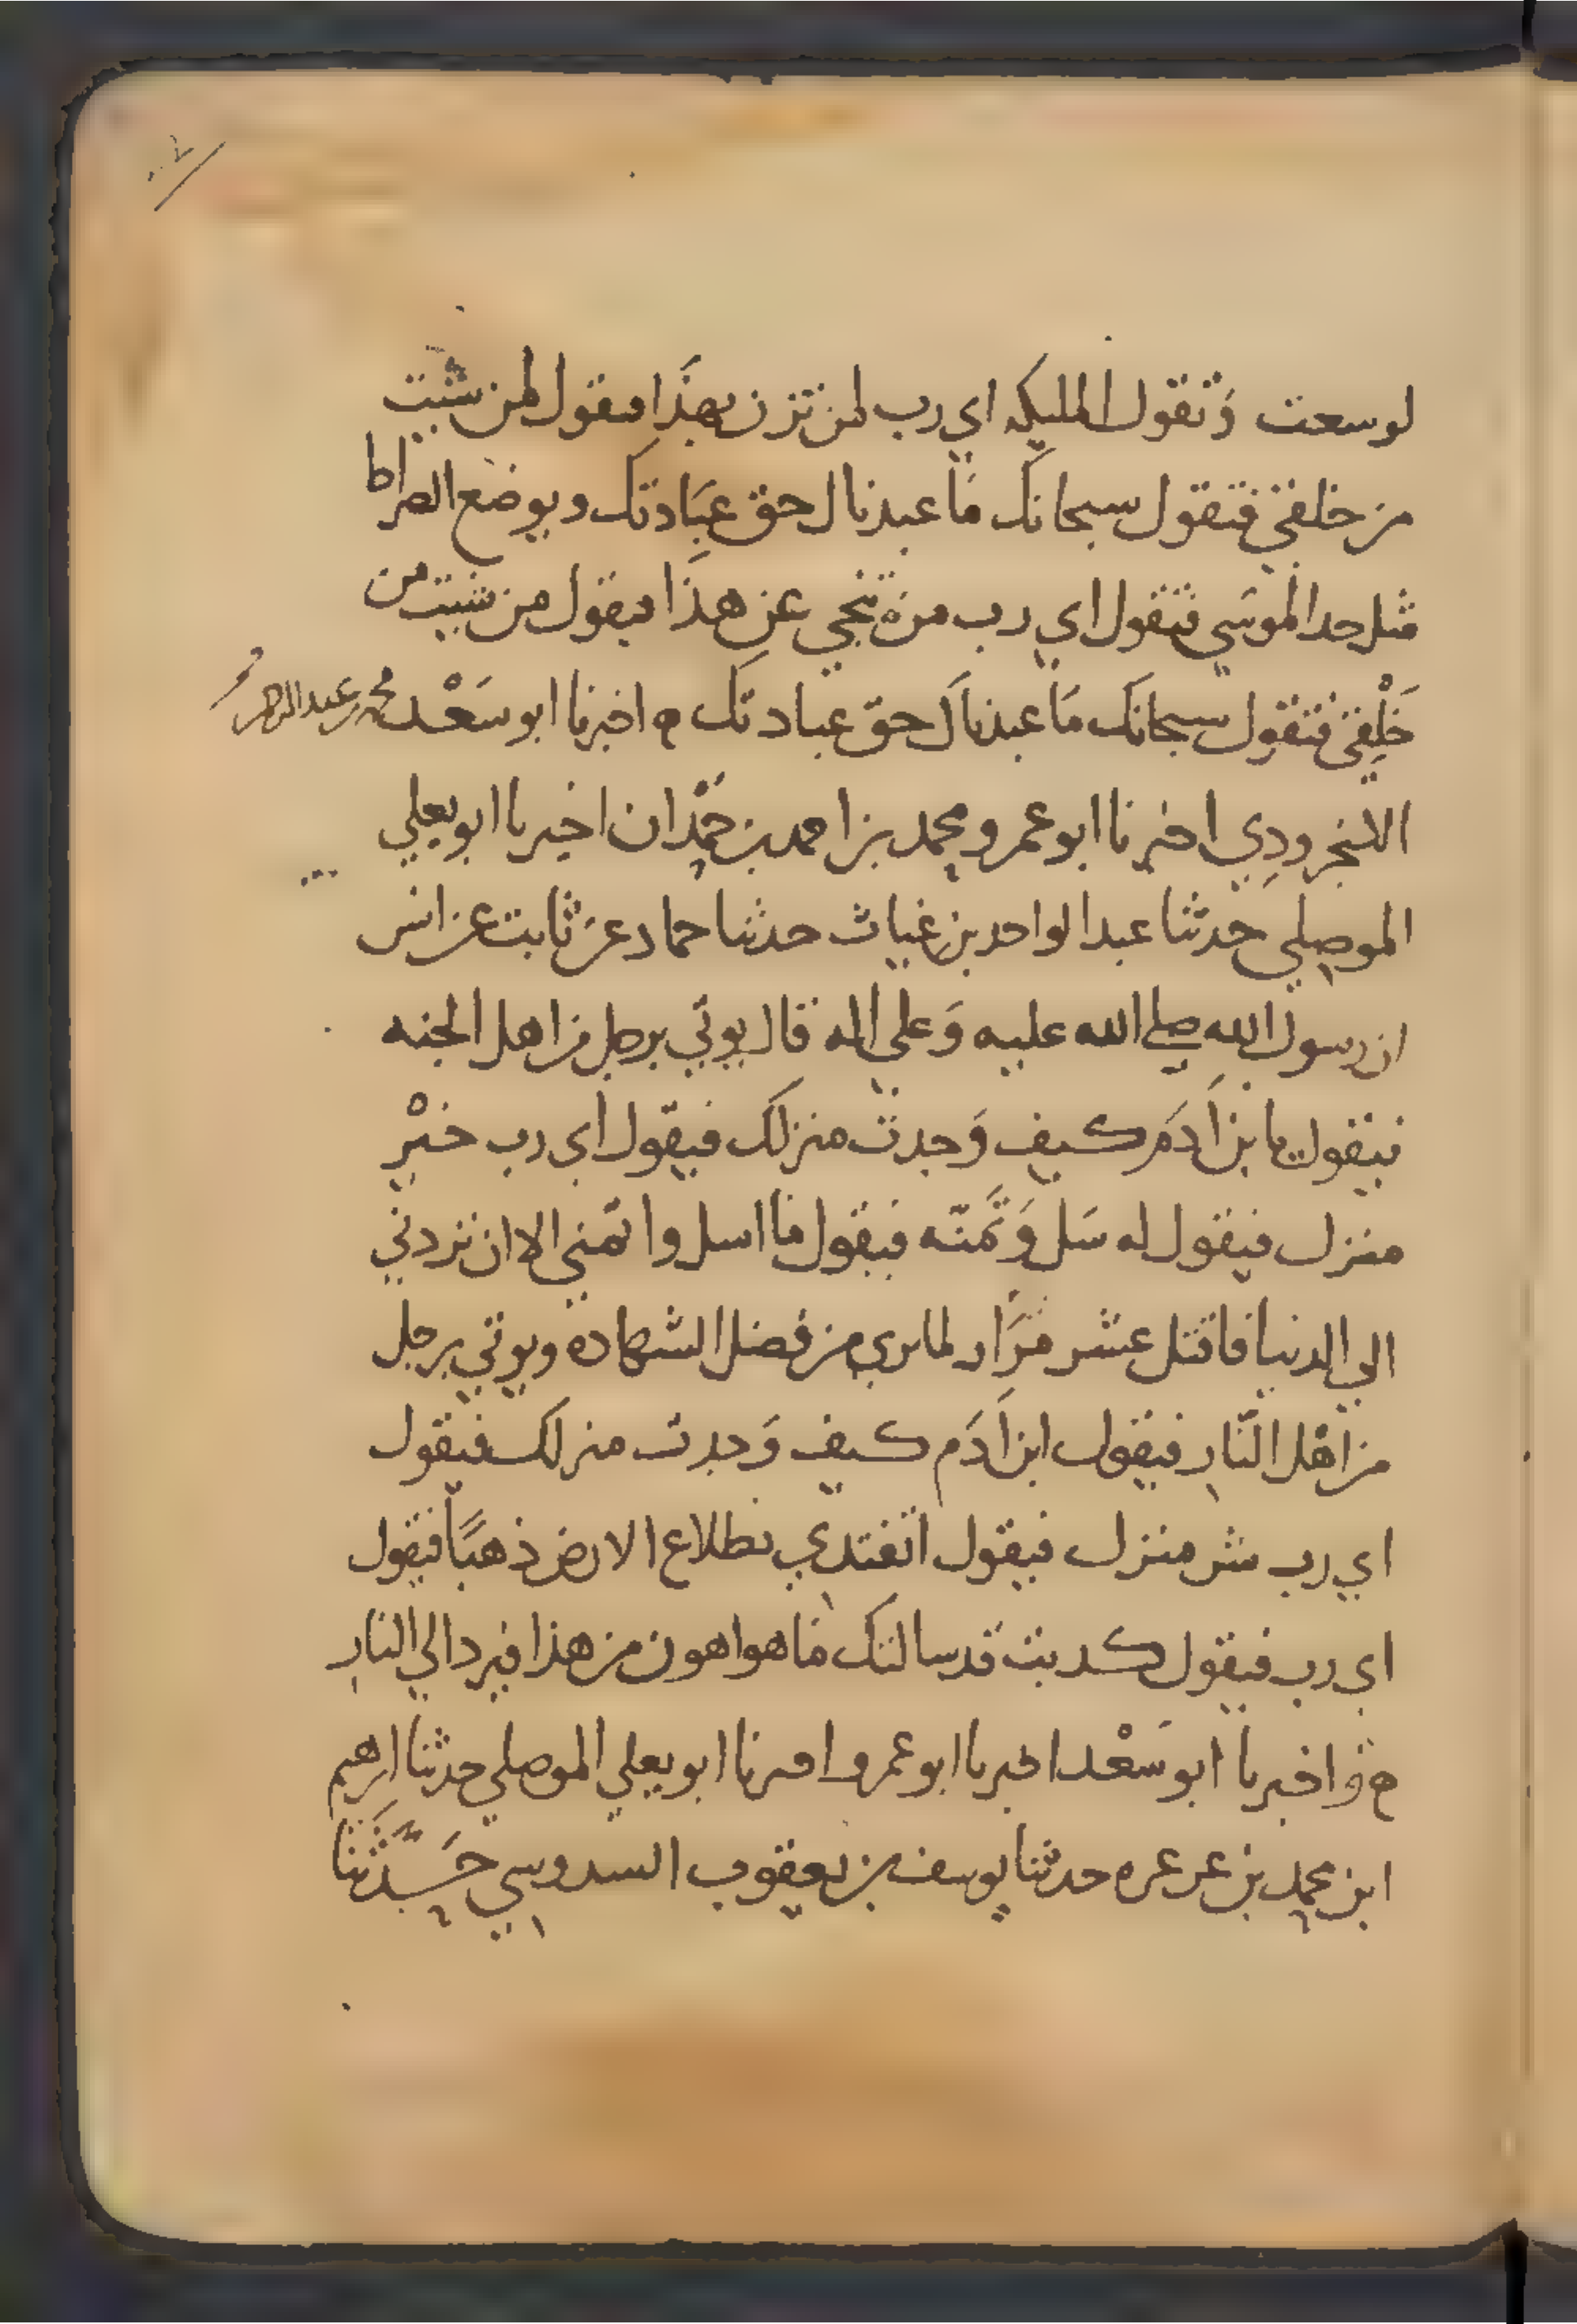 لوسعت وَتقول المليكه اي رب لمن تزن بهذَا فيقول لمن شيت
من خلقي فتقول سبحانك مَا عبدناك حق عبَادتك ويوضع الصراط
مثل حد الموسَي فتقول اي رب من تنجي عن هذَا فيقول من شيت من
خَلْقي فتقول سبحانك مَا عبدناكَ حق عبادتك ه اخبرنا ابو سَعْد محمد بن عبد الرحمن
الكنجرودِي اخبرنا ابو عمرو محمد بن احمد بن حَمْدان اخبرنا ابو يعلي
الموصلي حدثنا عبد الواحد بن غياث حدثنا حماد عن ثابت عن انس
ان رسول الله صلي الله عليه وَعلي اله قال يوتي برجل من اهل الجنه
فيقول يا بن اَدَم كيف وَجدت منزلك فيقول اي رب خيْر
منزل فيقول له سَل وَتمنّه فيقول مَا اسل واتمني الا ان تردني
الي الدنيا فاقتل عشر مرَار لما يري من فضل الشهاده ويوتي برجل
من اهْل النّار فيقول ابن اَدَم كيف وَجدت منزلك فيقول
اي رب شر منزل فيقول اتفتدي بطلاع الارض ذهبًا فيقول
اي رب فيقول كدبت قد سالتك مَا هو اهون من هذا فيرد الي النار
ه واخبرنا ابو سَعْد اخبرنا ابو عمرو اخبرنا ابو يعلي الموصلي حدثنا ابرهيم
ابن محمد بن عرعره حدثنا يوسف بن يعقوب السدوسي حَدَّثَنا